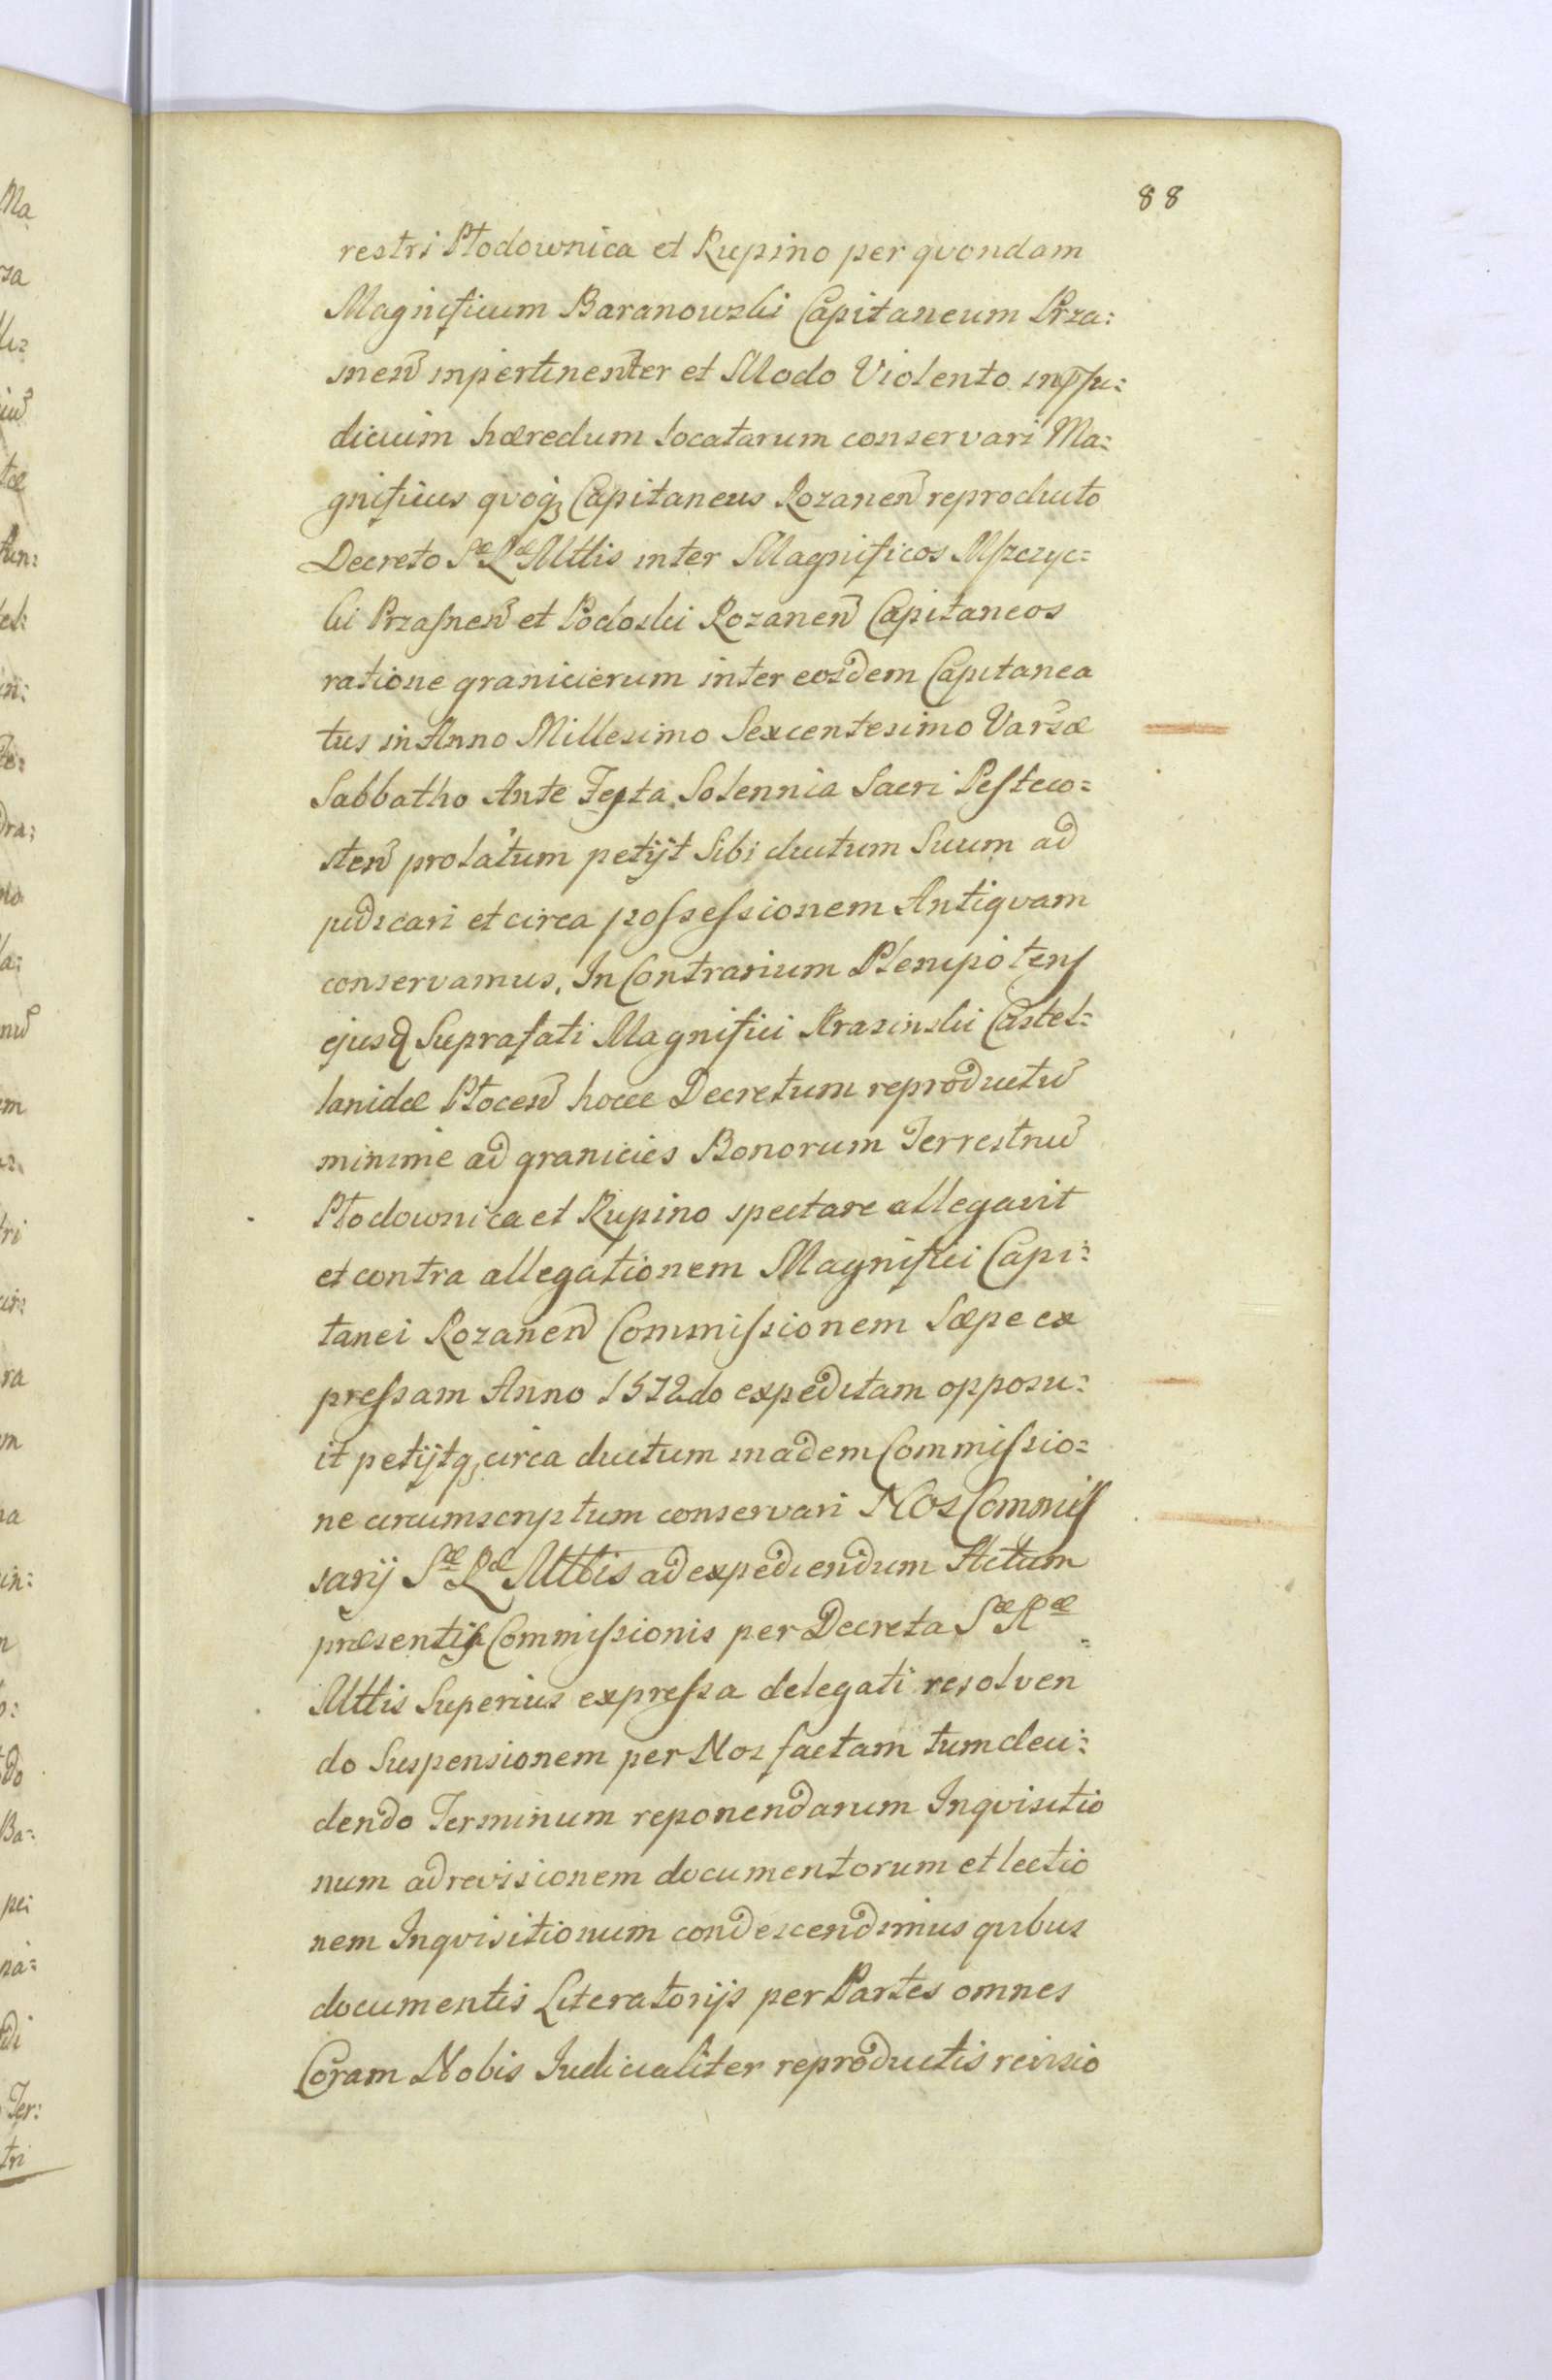 88
restri Płodownica et Rupino per qvondam
Magnificum Baranowski Capitaneum Prza:
snen̄ inpertinenter et Modo Violento in p̄ju:
dicium hæredum locatarum conservari Ma:
gnificus qvoq₃ Capitaneus Rozanen̄ reproducto
Decreto Sæ Ræ Mttis inter Magnificos Mszczyc=
ki Przasnen̄ et Podoski Rozanen̄ Capitaneos
ratione granicierum inter eosdem Capitanea
tus in Anno Millesimo Sexcentesimo Varsæ
Sabbatho Ante Festa Solennia Sacri Pesteco=
sten̄ prolatum petijt Sibi ductum Suum ad
judicari et circa possessionem Antiqvam
conservamus, In Contrarium Plenipotens
ejusq Suprafati Magnifici Krasinski Castel=
lanidæ Płocen̄ hocce Decretum reproductū
minime ad granicies Bonorum Terrestriū
Płodownica et Rupino spectare allegavit
et contra allegationem Magnifici Capi:
tanei Rozanen̄ Commissionem Sæpe ex
pressam Anno 1572do expeditam opposu:
it petijtq₃ circa ductum in adem Commissio=
ne circumscriptum conservari NOS Commis
sarij Sæ Ræ Mttis ad expediendum Actum
præsentis Commissionis per Decreta Sæ Ræ
Mttis Superius expressa delegati resolven
do Suspensionem per Nos factam tum deci:
dendo Terminum reponendarum Inqvisitio
num ad revisionem documentorum et lectio
nem Inqvisitionum condescendimus qvibus
documentis Literatorijs per Partes omnes
Coram Nobis Iudicialiter reproductis revisio